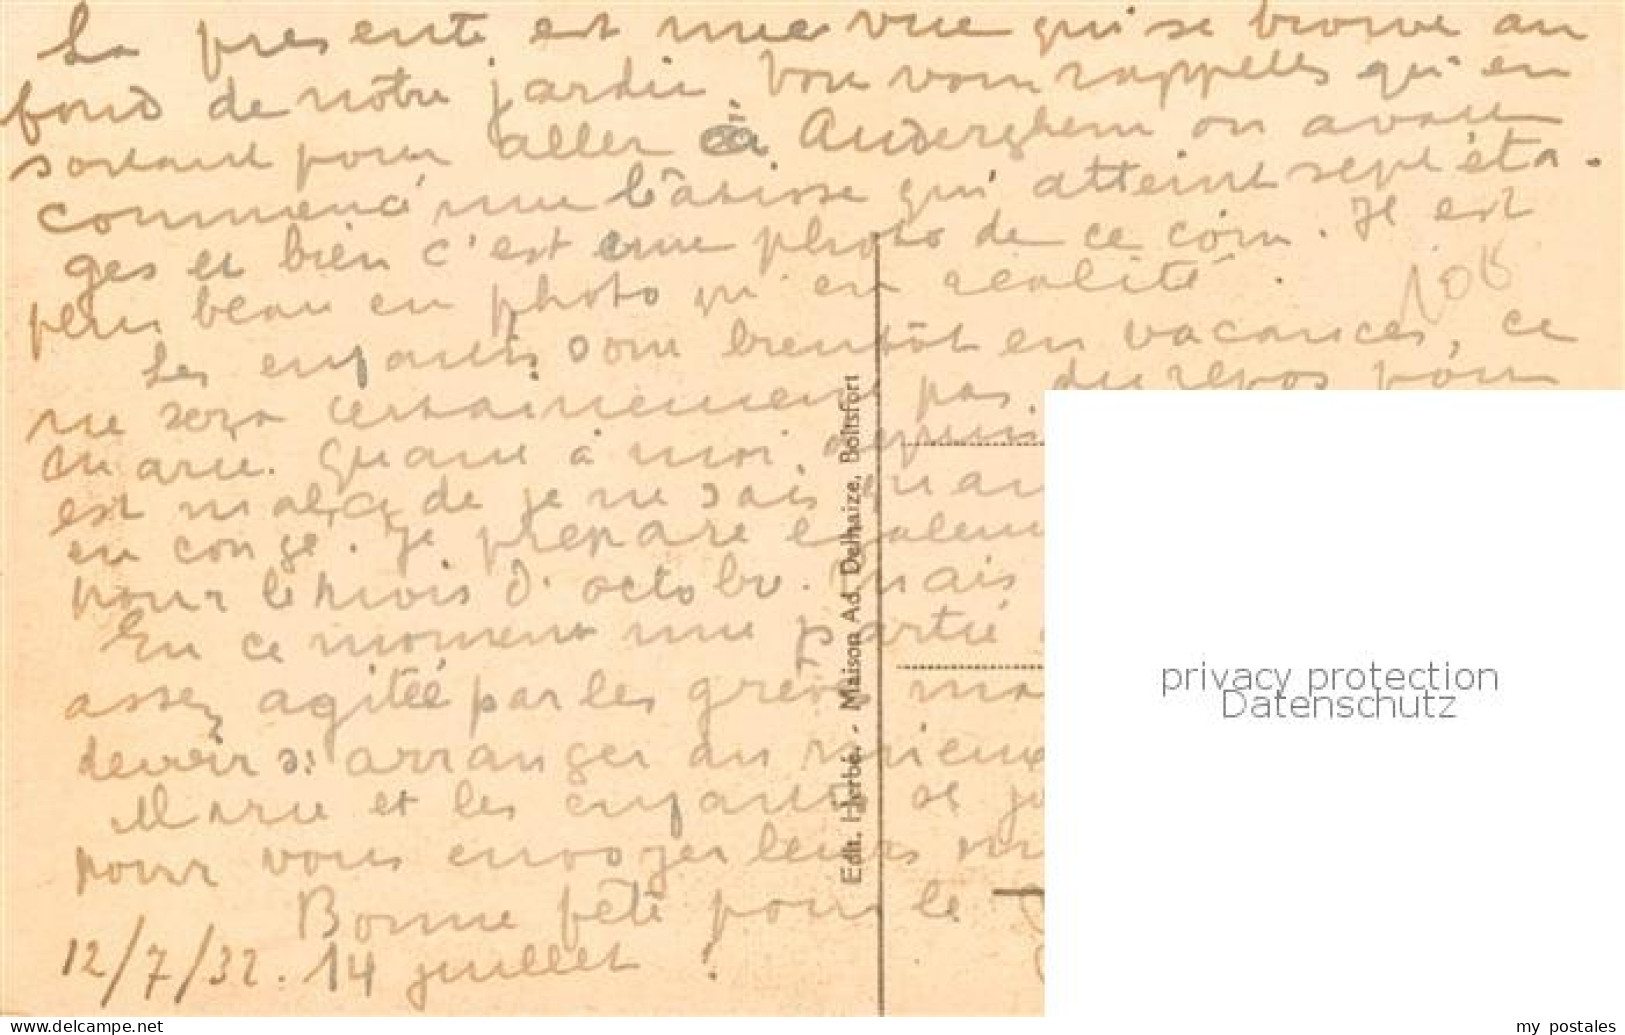 La presente est une vue qui se trouve au
fond de notre jardin. Vous vous rappelles qu'en
sortant pour aller à Auderghem on avait
commencé une bâtisse qui atteint sept éta-
ges et bien c'est une photo de ce coin. Il est
plus beau en photo qu'en réalité.
108
Les enfants sont bientôt en vacances, ce
ne sera certainement pas du repos pour
Marie. Quant à moi, depuis
est malade je ne sais quan
en congé. Je prepare egalem
pour le mois d'octobre. Mais
En ce moment une partie
assez agitée par les grèves ma
devoir s'arranger au mieux
Marie et les enfants se jo
pour vous envoyer leurs
Bonne fête pour le
12/7/32. 14 juillet !
Edit. Herbé. - Maison Ad. Delhaize, Boitsfort
privacy protection
Datenschutz
www.delcampe.net
my_postales